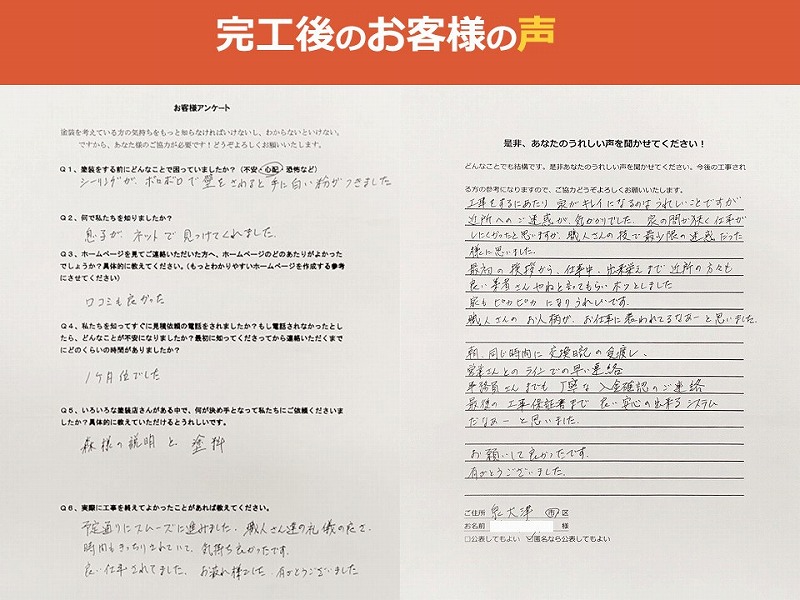 完工後のお客様の声
お客様アンケート
塗装を考えている方の気持ちをもっと知らなければいけないし、わからないといけない。
ですから、あなた様のご協力が必要です！どうぞよろしくお願いいたします。
Q1、塗装をする前にどんなことで困っていましたか？（不安・心配・恐怖など）
シーリングが、ボロボロで壁をさわると手に白い粉がつきました
Q2、何で私たちを知りましたか？
息子が ネットで見つけてくれました。
Q3、ホームページを見てご連絡いただいた方へ、ホームページのどのあたりがよかった
でしょうか？具体的に教えてください。（もっとわかりやすいホームページを作成する参考
にさせてください）
口コミも良かった
Q4、私たちを知ってすぐに見積依頼の電話をされましたか？もし電話されなかったとし
たら、どんなことが不安になりましたか？最初に知ってくださってから連絡いただくまで
にどのくらいの時間がありましたか？
1ヶ月位でした
Q5、いろいろな塗装店さんがある中で、何が決め手となって私たちにご依頼くださいま
したか？具体的に教えていただけるとうれしいです。
森様の説明と、塗料
Q6、実際に工事を終えてよかったことがあれば教えてください。
予定通りにスムーズに進みました。職人さん達の礼儀の良さ、
時間もきっちりされていて、気持ち良かったです。
良い仕事されてました。お疲れ様でした 有がとうございました
是非、あなたのうれしい声を聞かせてください！
どんなことでも結構です。是非あなたのうれしい声を聞かせてください。今後の工事され
る方の参考になりますので、ご協力どうぞよろしくお願いいたします。
工事をするにあたり 家がキレイになるのはうれしいことですが
近所へのご迷惑が、気がかりでした。家の間が狭く仕事が
しにくかったと思いますが、職人さんの技で最少限の迷惑だった
様に思いました。
最初の挨拶から、仕事中、出来栄えまで近所の方々も
良い業者さんやねと言ってもらいホッとしました
家もピカピカになりうれしいです。
職人さんのお人柄が、お仕事に表われてるなあーと思いました。
朝、同じ時間に交換日記の受渡し、
営業さんとのラインでの早い連絡
事務員さんまでも丁寧な入金確認のご連絡
最後の工事保証書まで良い安心の出来るシステム
だなあーと思いました。
お願いして良かったです。
有がとうございました。
ご住所 泉大津 市 区
お名前 様
□公表してもよい ☑匿名なら公表してもよい